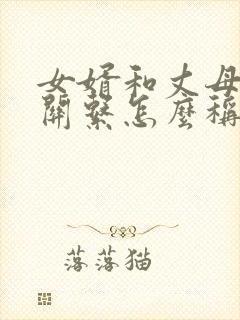 女婿和丈母
關繫怎麼稱
落落猫